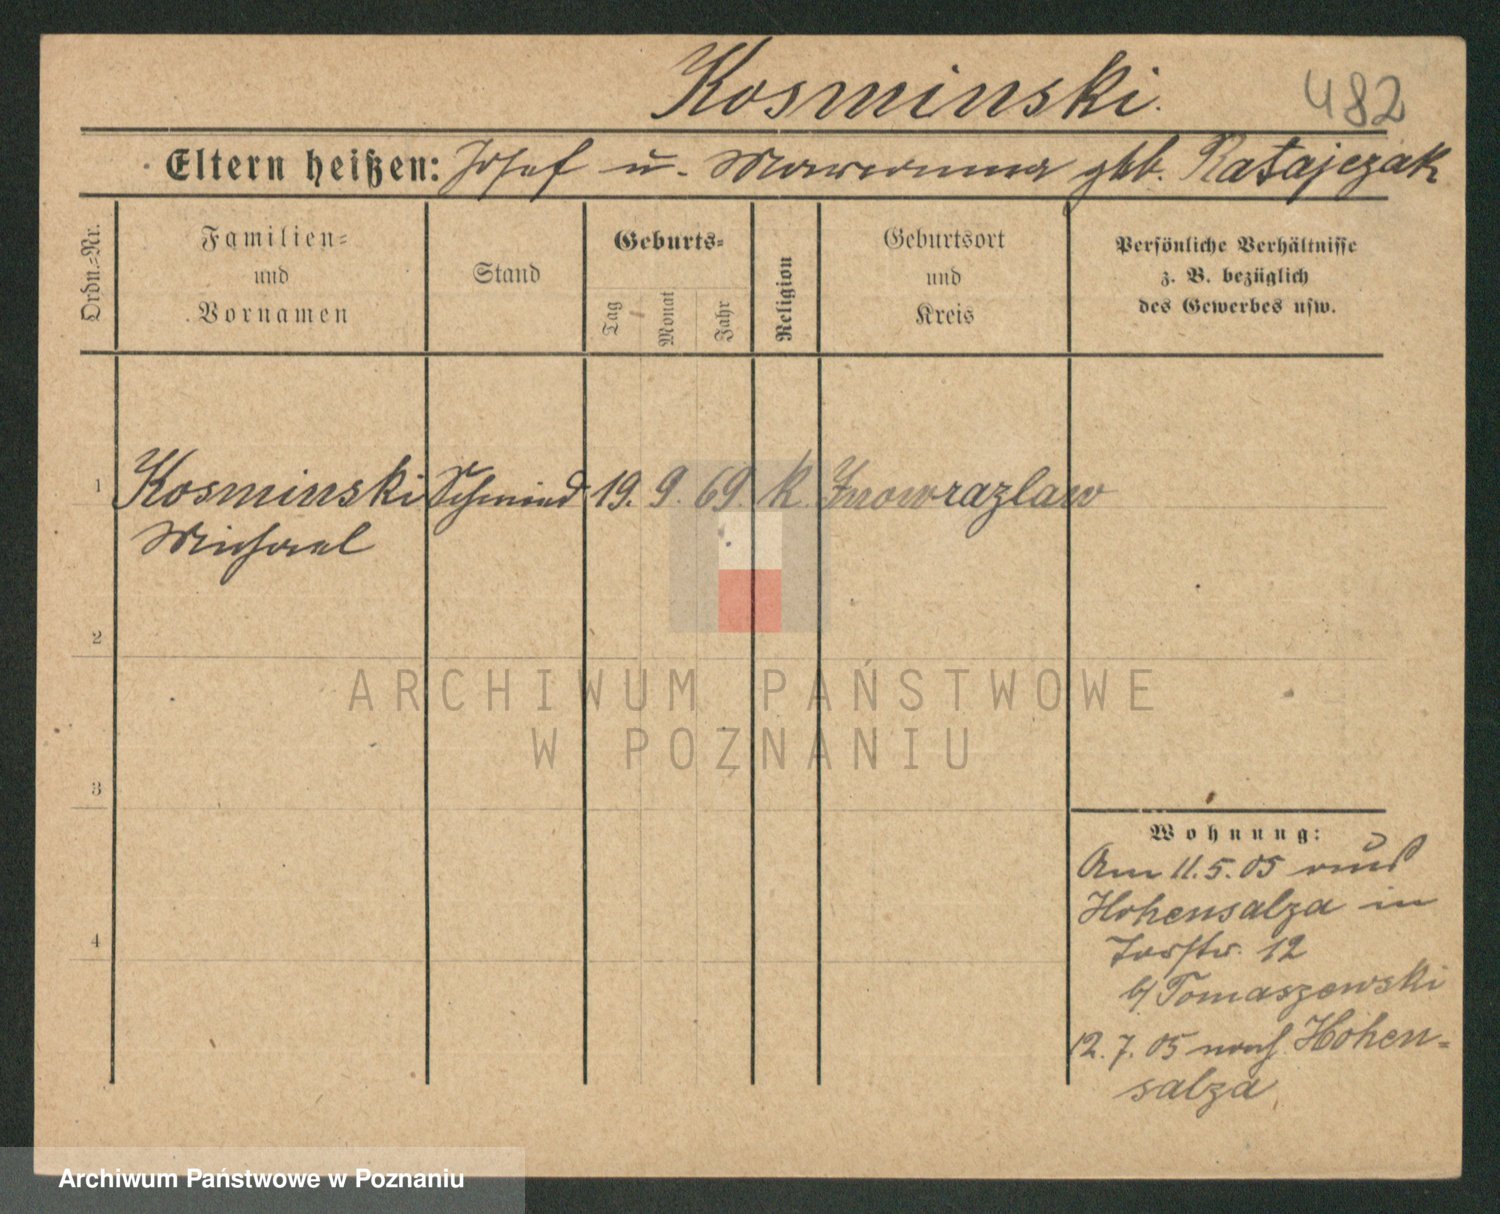 Kosminski.
482
Eltern heißen: Josef u. Marianna geb. Ratajczak
Ordn.-Nr.
Familien-
und
Vornamen
Stand
Geburts-
Tag
Monat
Jahr
Religion
Geburtsort
und
Kreis
Persönliche Verhältnisse
z. B. bezüglich
des Gewerbes usw.
1 Kosminski Schmied 19. 9. 69. k. Inowrazlaw
Michael
2
3
4
ARCHIWUM PAŃSTWOWE
W POZNANIU
Wohnung:
Am 11.5.05 aus
Hohensalza in
12
b/ Tomaszewski
12. 7. 05 nach Hohen-
salza
Archiwum Państwowe w Poznaniu